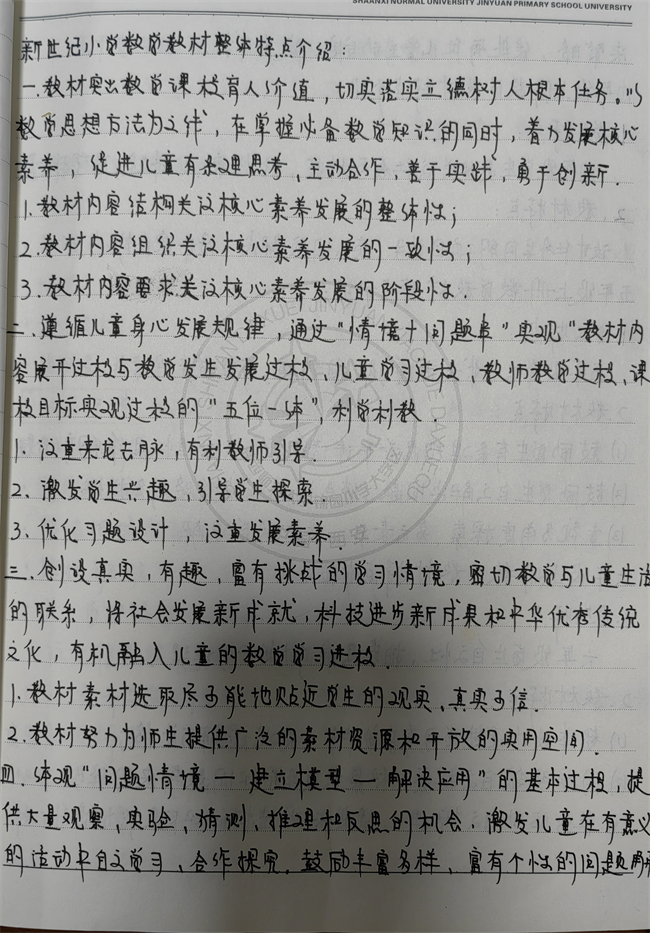 SHAANXI NORMAL UNIVERSITY JINYUAN PRIMARY SCHOOL UNIVERSITY
新世纪小学数学教材整体特点介绍:
一.教材突出数学课程育人价值,切实落实立德树人根本任务。以
数学思想方法为主线,在掌握必备数学知识的同时,着力发展核心
素养,促进儿童有条理思考、主动合作、善于实践、勇于创新.
1.教材内容结构关注核心素养发展的整体性;
2.教材内容组织关注核心素养发展的一致性;
3.教材内容要求关注核心素养发展的阶段性.
二.遵循儿童身心发展规律,通过"情境+问题串"实现"教材内
容展开过程与数学发生发展过程、儿童学习过程、教师教学过程、课
程目标实现过程的"五位一体",利学利教.
1.注重来龙去脉,有利教师引导.
2.激发学生兴趣,引导学生探索.
3.优化习题设计,注重发展素养.
三.创设真实,有趣,富有挑战的学习情境,密切数学与儿童生活
的联系,将社会发展新成就,科技进步新成果和中华优秀传统
文化,有机融入儿童的数学学习进程.
1.教材素材选取尽可能地贴近学生的现实、真实可信.
2.教材努力为师生提供广泛的素材资源和开放的实用空间.
四.体现"问题情境—建立模型—解决应用"的基本过程,提
供大量观察、实验、猜测、推理和反思的机会.激发儿童在有意义
的活动中自主学习、合作探究.鼓励丰富多样、富有个性的问题解